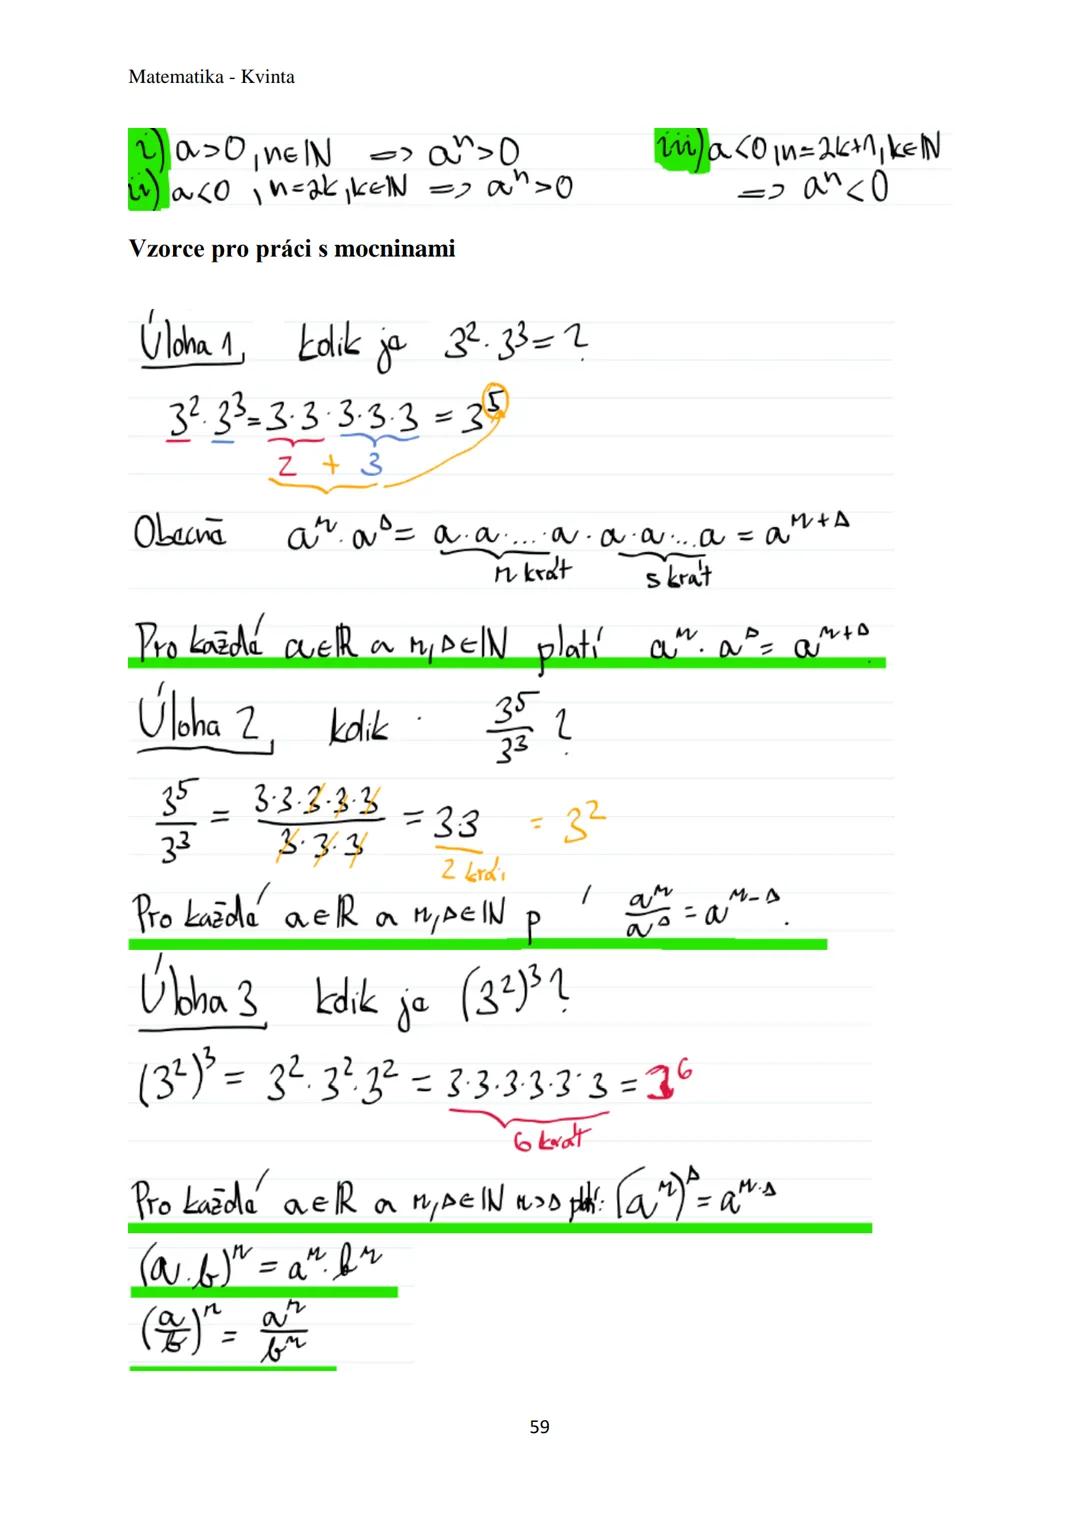 Matematika - Kvinta
i) a>0, n∈ℕ => aⁿ>0
iii) a<0, n=2k+1, k∈ℕ
ii) a<0, n=2k, k∈ℕ => aⁿ>0
=> aⁿ<0
Vzorce pro práci s mocninami
Úloha 1, kolik je 3²·3³=?
3²·3³=3·3·3·3·3=3⁵
2 + 3
Obecně aʳ·aˢ= a·a·...·a·a·a·...a = aʳ⁺ˢ
r krát s krát
Pro každé a∈ℝ a r,s∈ℕ platí aʳ·aˢ= aʳ⁺ˢ.
Úloha 2, kolik 3⁵/3³ ?
3⁵/3³ = 3·3·3·3·3/3·3·3 = 3·3 = 3²
2 krát
Pro každé a∈ℝ a r,s∈ℕ p aʳ/aˢ = aʳ⁻ˢ.
Úloha 3, kolik je (3²)³?
(3²)³= 3²·3²·3² = 3·3·3·3·3·3 = 3⁶
6 krát
Pro každé a∈ℝ a r,s∈ℕ r>s platí: (aʳ)ˢ= aʳ·ˢ
(a·b)ʳ = aʳ·bʳ
(a/b)ʳ = aʳ/bʳ
59